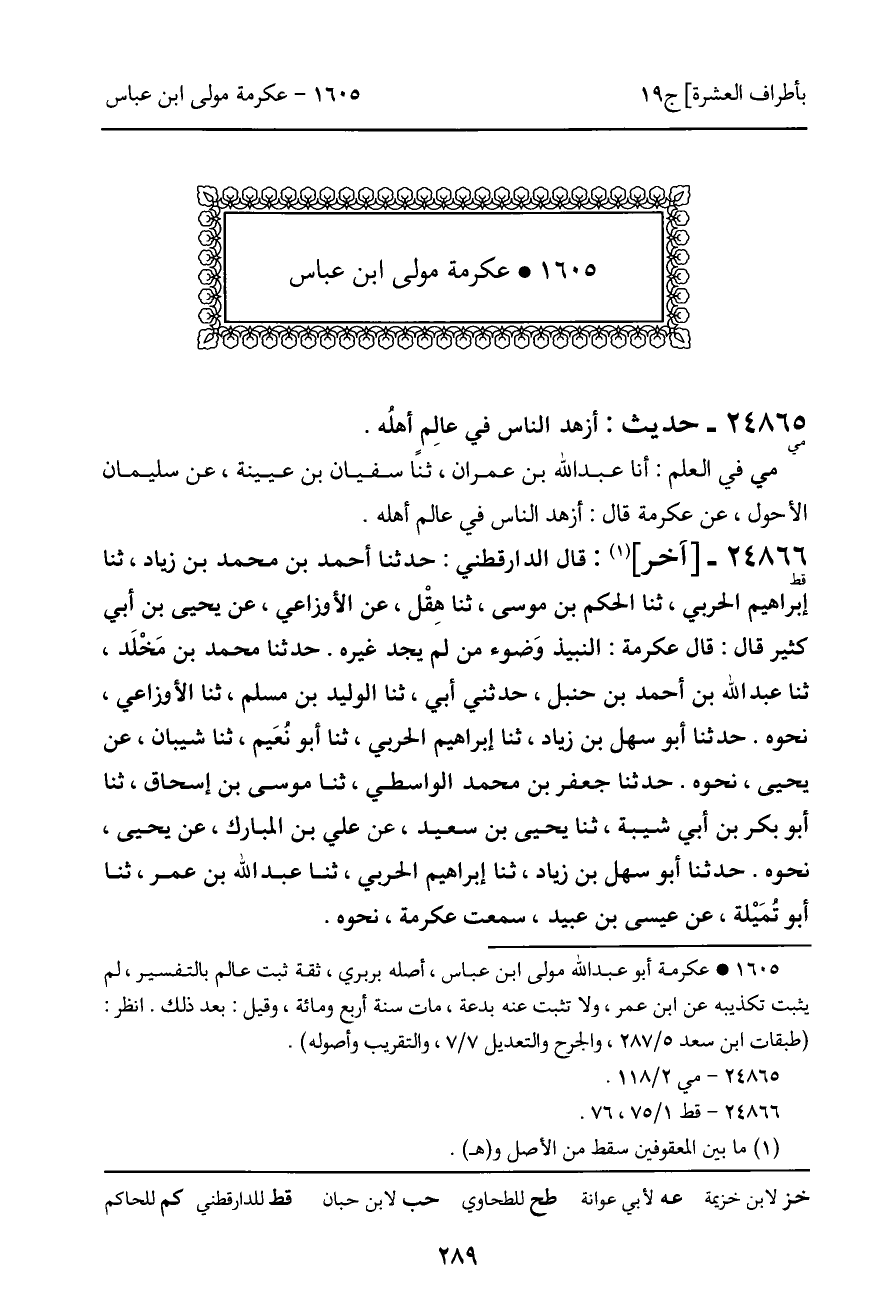 بأطراف العشرة] ج١٩ ١٦٠٥ – عكرمة مولى ابن عباس
١٦٠٥ ● عكرمة مولى ابن عباس
٢٤٨٦٥ ـ حديث : أزهد الناس في عالِمٍ أهلُه .
مي
مي في العلم : أنا عبدالله بن عمران ، ثنا سفيان بن عيينة ، عن سليمان
الأحول ، عن عكرمة قال : أزهد الناس في عالم أهله .
٢٤٨٦٦ ـ [آخر](١) : قال الدارقطني : حدثنا أحمد بن محمد بن زياد ، ثنا
قط
إبراهيم الحربي ، ثنا الحكم بن موسى ، ثنا هِقْل ، عن الأوزاعي ، عن يحيى بن أبي
كثير قال : قال عكرمة : النبيذ وَضوء من لم يجد غيره . حدثنا محمد بن مَخْلَد ،
ثنا عبدالله بن أحمد بن حنبل ، حدثني أبي ، ثنا الوليد بن مسلم ، ثنا الأوزاعي ،
نحوه . حدثنا أبو سهل بن زياد ، ثنا إبراهيم الحربي ، ثنا أبو نُعَيم ، ثنا شيبان ، عن
يحيى ، نحوه . حدثنا جعفر بن محمد الواسطي ، ثنا موسى بن إسحاق ، ثنا
أبو بكر بن أبي شيبة ، ثنا يحيى بن سعيد ، عن علي بن المبارك ، عن يحيى ،
نحوه . حدثنا أبو سهل بن زياد ، ثنا إبراهيم الحربي ، ثنا عبدالله بن عمر ، ثنا
أبو تُمَيْلة ، عن عيسى بن عبيد ، سمعت عكرمة ، نحوه .
١٦٠٥ ● عكرمة أبو عبدالله مولى ابن عباس ، أصله بربري ، ثقة ثبت عالم بالتفسير ، لم
يثبت تكذيبه عن ابن عمر ، ولا تثبت عنه بدعة ، مات سنة أربع ومائة ، وقيل : بعد ذلك . انظر :
(طبقات ابن سعد ٢٨٧/٥ ، والجرح والتعديل ٧/٧ ، والتقريب وأصوله) .
٢٤٨٦٥ – مي ١١٨/٢ .
٢٤٨٦٦ – قط ٧٥/١ ، ٧٦ .
(١) ما بين المعقوفين سقط من الأصل و(هـ) .
خز لابن خزيمة عه لأبي عوانة طح للطحاوي حب لابن حبان قط للدارقطني كم للحاكم
٢٨٩